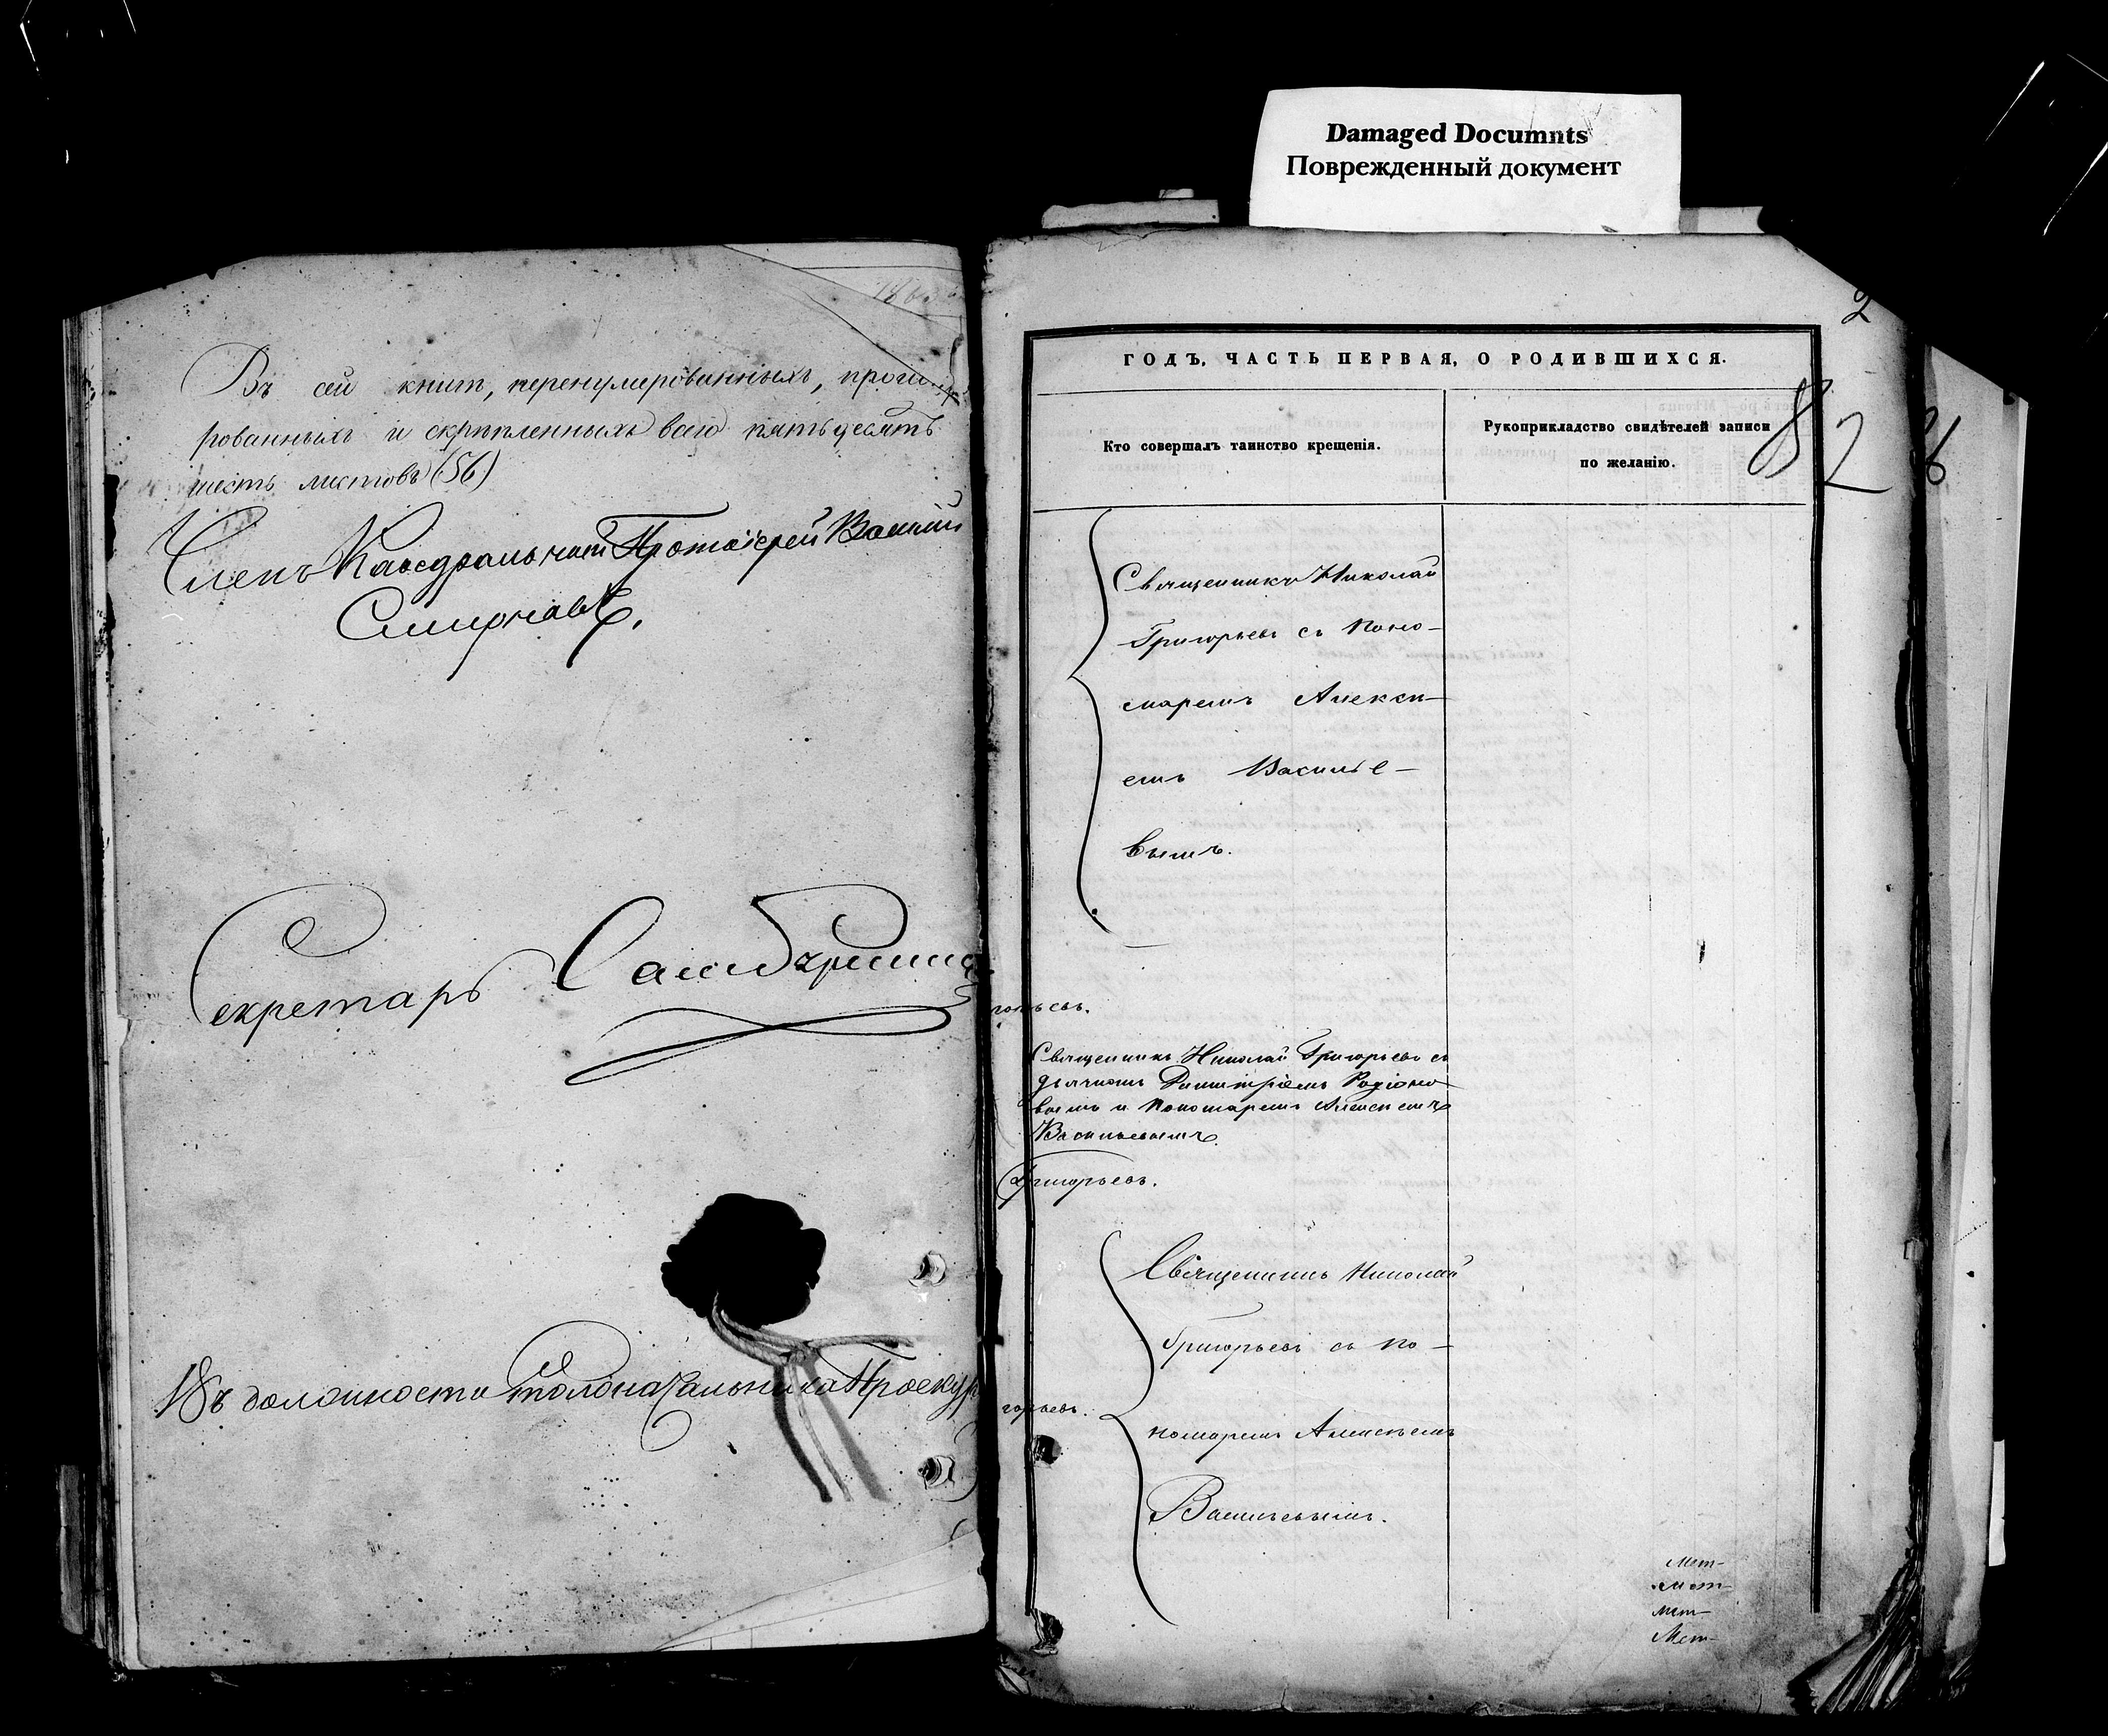 Damaged Documnts
Поврежденный документ
Въ сей книгѣ, перенумерованныхъ, прошну-
рованныхъ и скрѣпленныхъ всего пятьдесятъ
шесть листовъ (56)
Членъ Каѳедральный Протоіерей Василій
Смирновъ.
Секретарь
Въ должности Столоначальника
2
ГОДЪ, ЧАСТЬ ПЕРВАЯ, О РОДИВШИХСЯ.
Кто совершалъ таинство крещенія.
Рукоприкладство свидѣтелей записи
по желанію.
82
Священникъ Николай
Григорьевъ съ Поно-
маремъ Алексѣ-
емъ Василье-
вымъ.
горьевъ.
Священникъ Николай Григорьевъ съ
дьячкомъ Димитріемъ Родіоно
вымъ и Пономаремъ Алексѣемъ
Васильевымъ.
Григорьевъ.
Священникъ Николай
Григорьевъ съ По-
номаремъ Алексѣемъ
горьевъ.
Васильевымъ.
Мет-
Мет-
Мет-
Мет-